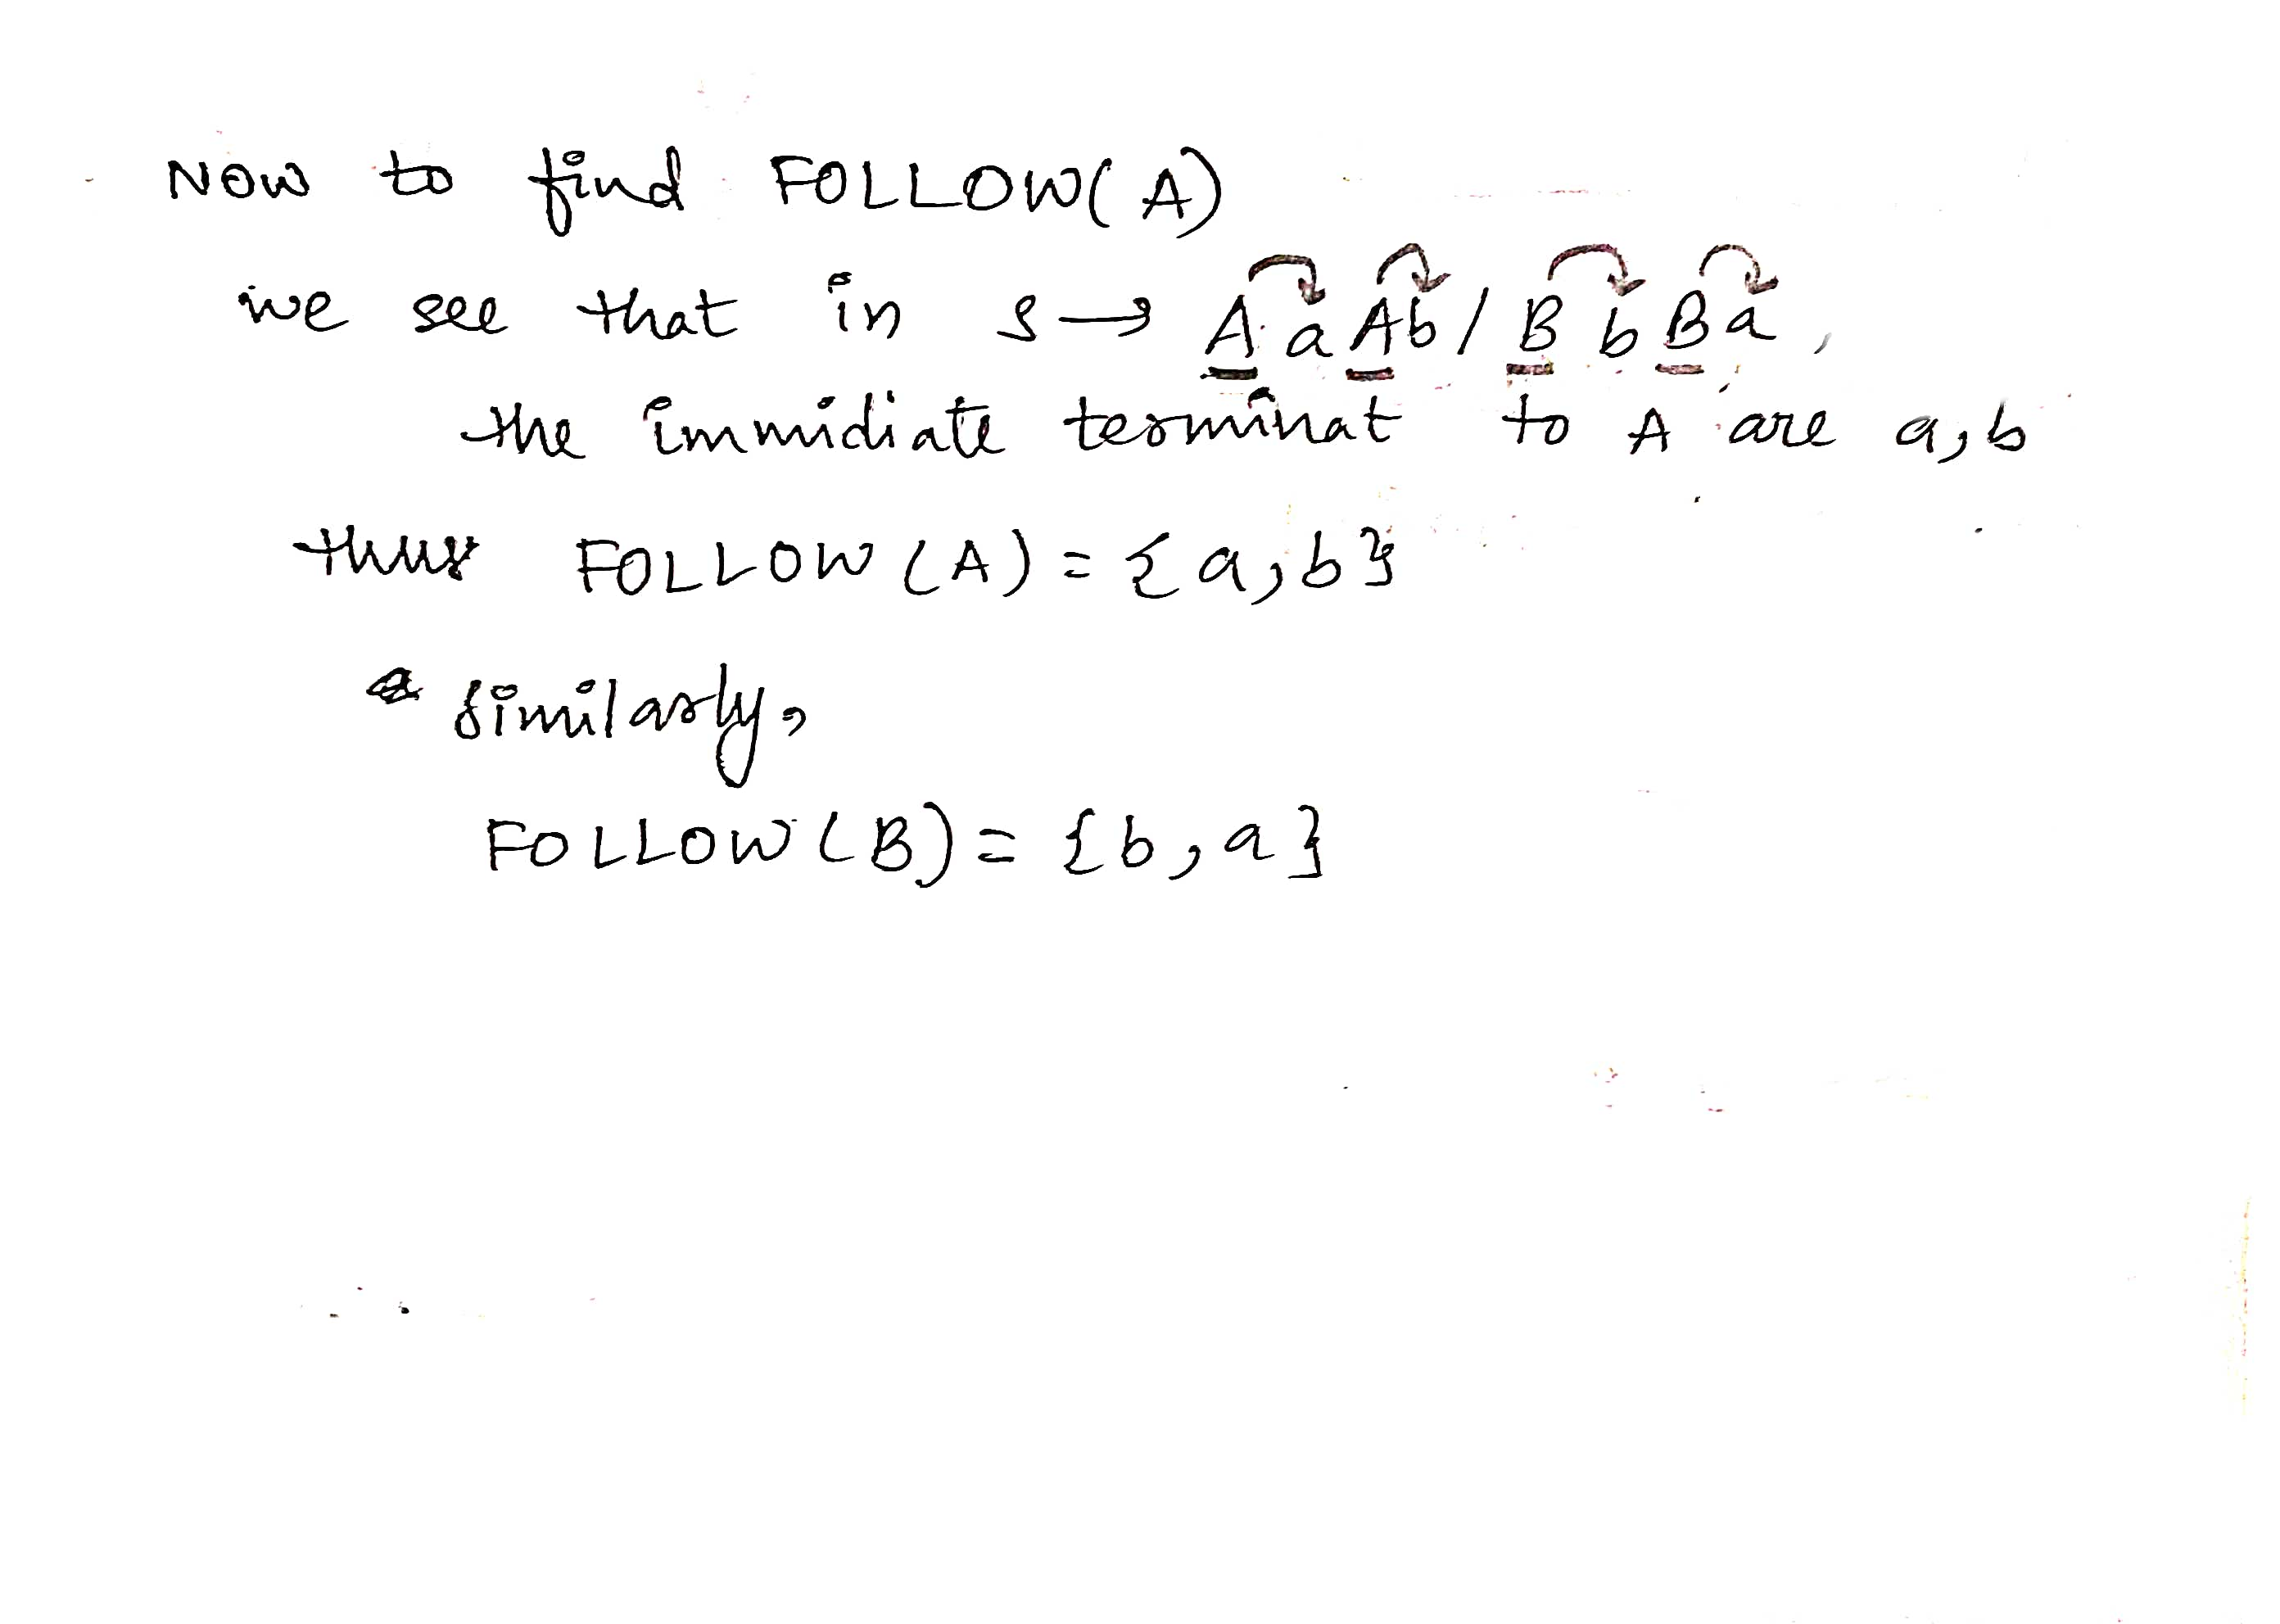 Now to find FOLLOW(A)
we see that in S → A a A b / B b B a ,
the immidiate terminat to A are a, b
thus FOLLOW (A) = {a, b}
similarly,
FOLLOW (B) = {b, a}